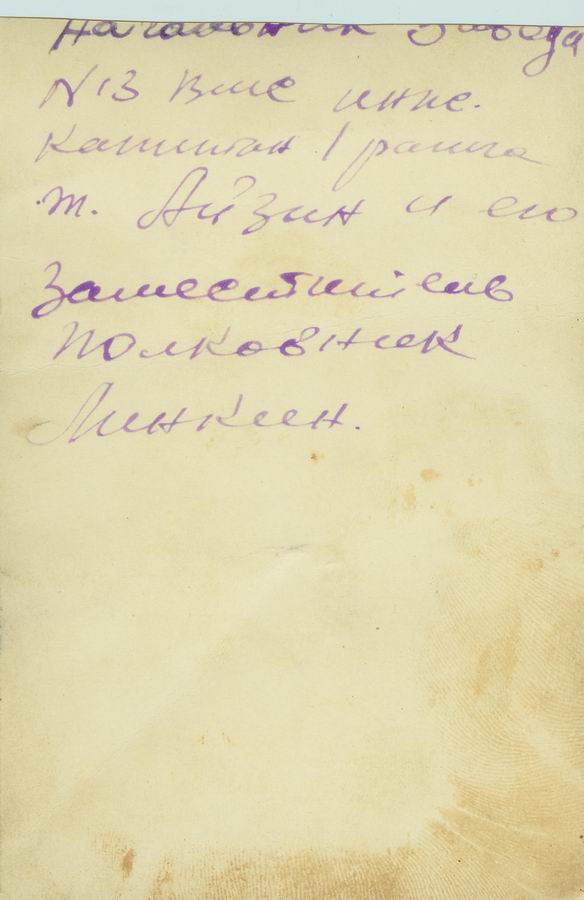 Начальник Завода
N 13 ВМС инж.
Капитан 1 ранга
т. Айзин и его
Заместитель
Полковник
Линкин.